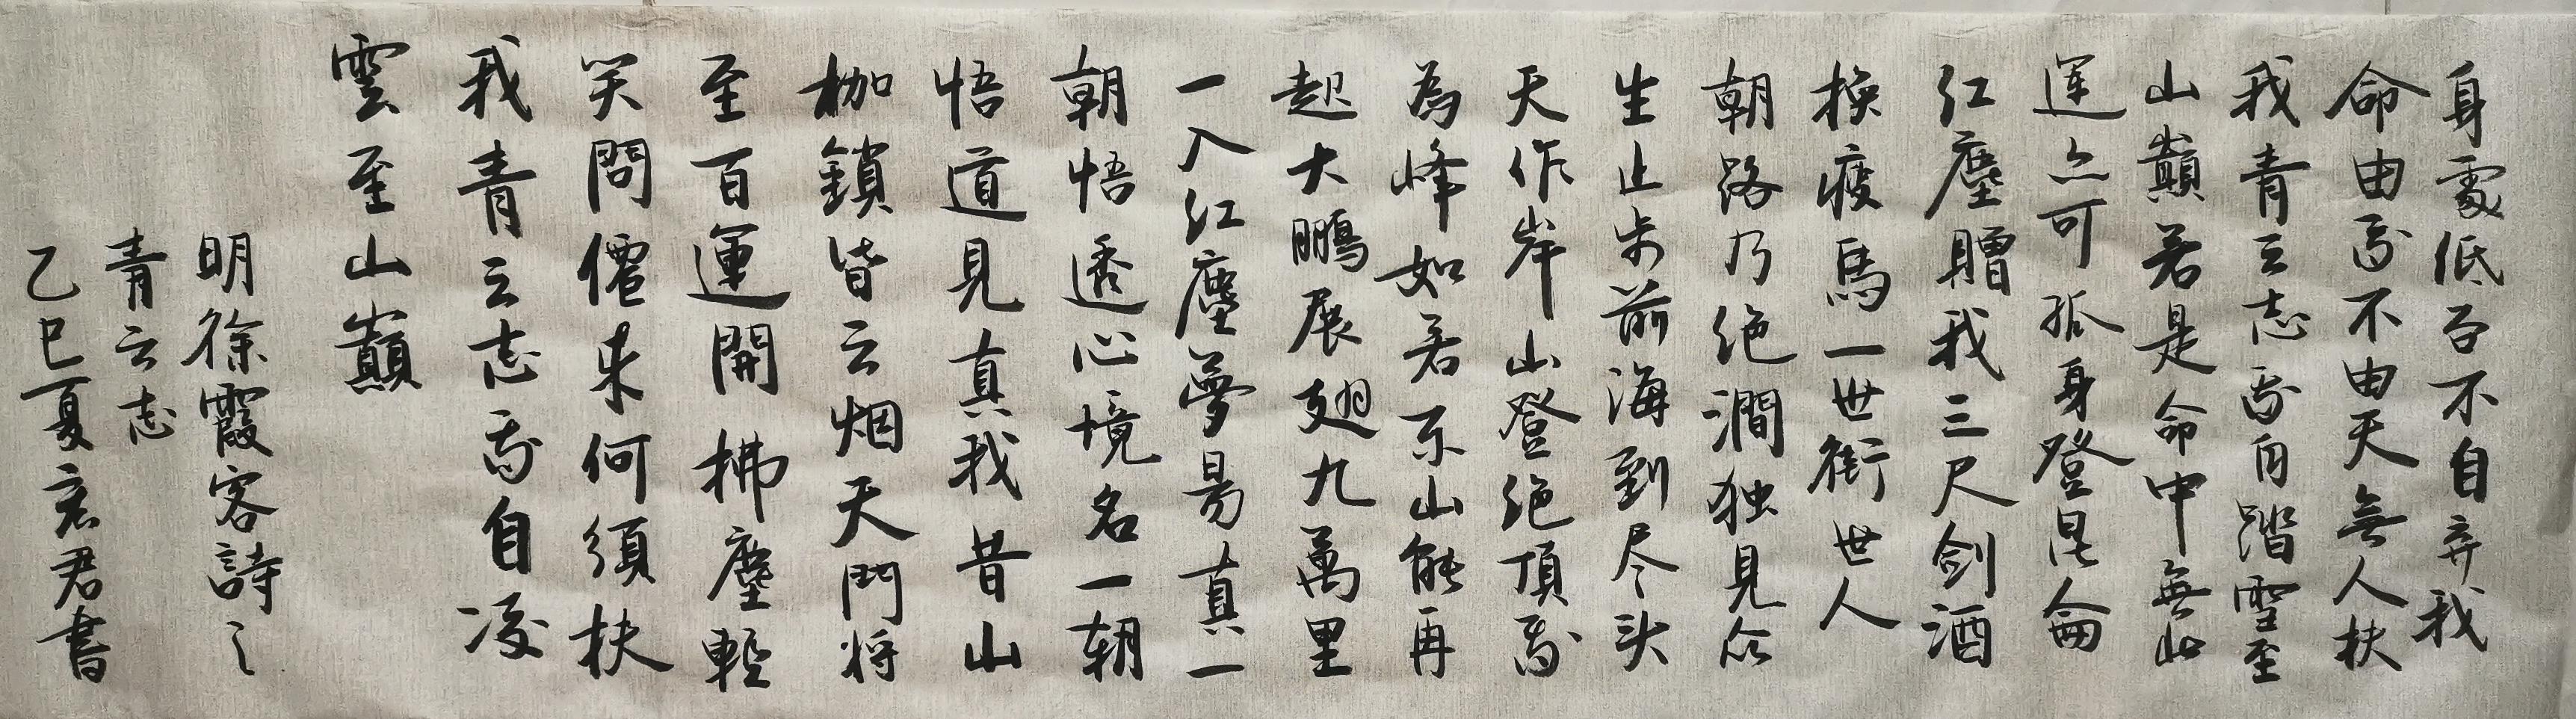 身處低谷不自弃我
命由我不由天無人扶
我青云志我自踏雪至
山巔若是命中無此
運亦可孤身登昆侖
红塵贈我三尺剑酒
换瘦馬一世街世人
朝路乃绝澗独見众
生止步前海到尽头
天作岸山登绝頂我
為峰如若东山能再
起大鵬展翅九萬里
一入红塵夢易真一
朝悟透心境名一朝
悟道見真我昔山
枷鎖皆云烟天門将
至百運開拂塵輕
笑問僊来何須扶
我青云志我自凌
雲至山巔
明徐霞客詩之
青云志
乙巳夏 君書